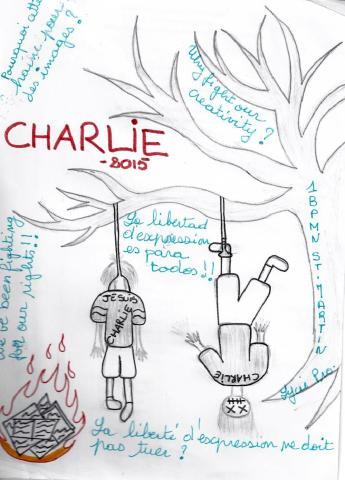 Pourquoi cette
haine pour
des images?
Why fight our
creativity?
CHARLIE
-2015
La libertad
d'expression
es para
todos!!
1BPMN ST-MARTIN
Lycée Pro.
We've been fighting
for our rights!!
JESUIS
CHARLIE
CHARLIE
La liberté d'expression ne doit
pas tuer?